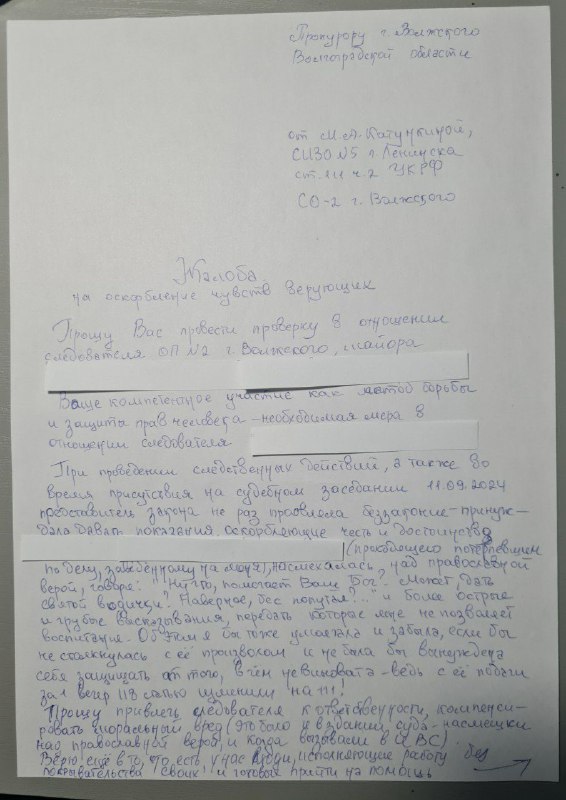 Прокурору г. Волжского
Волгоградской области
от М.А. Катункиной,
СИЗО №5 г. Ленинска
ст. 111 ч. 2 УКРФ
СО-2 г. Волжского
Жалоба
на оскорбление чувств верующих
Прошу Вас провести проверку в отношении
следователя ОП №2 г. Волжского, майора
Ваше компетентное участие как метод борьбы
и защиты прав человека – необходимая мера в
отношении следователя
При проведении следственных действий, а также во
время присутствия на судебном заседании 11.09.2024
представитель закона не раз проявляла беззаконие – принуж-
дала давать показания, оскорбляющие честь и достоинство
(проходящего потерпевшим
по делу, заведённому на меня), насмехалась над православной
верой, говоря: "Ну что, помогает Вам Бог? Может, дать
святой водички? Наверное, бес попутал?..." и более острые
и грубые высказывания, передать которые мне не позволяет
воспитание. Об этом я бы тоже умолчала и забыла, если бы
не столкнулась с её произволом и не была бы вынуждена
себя защищать от того, в чём не виновата – ведь с её подачи
за 1 вечер 118 статью изменили на 111!
Прошу привлечь следователя к ответственности, компенси-
ровать моральный вред (это было и в здании суда – насмешки
над православной верой, и когда вызовали в ИВС).
Верю ещё в то, что есть у нас люди, исполняющие работу без
покрывательства "своих" и готовых прийти на помощь